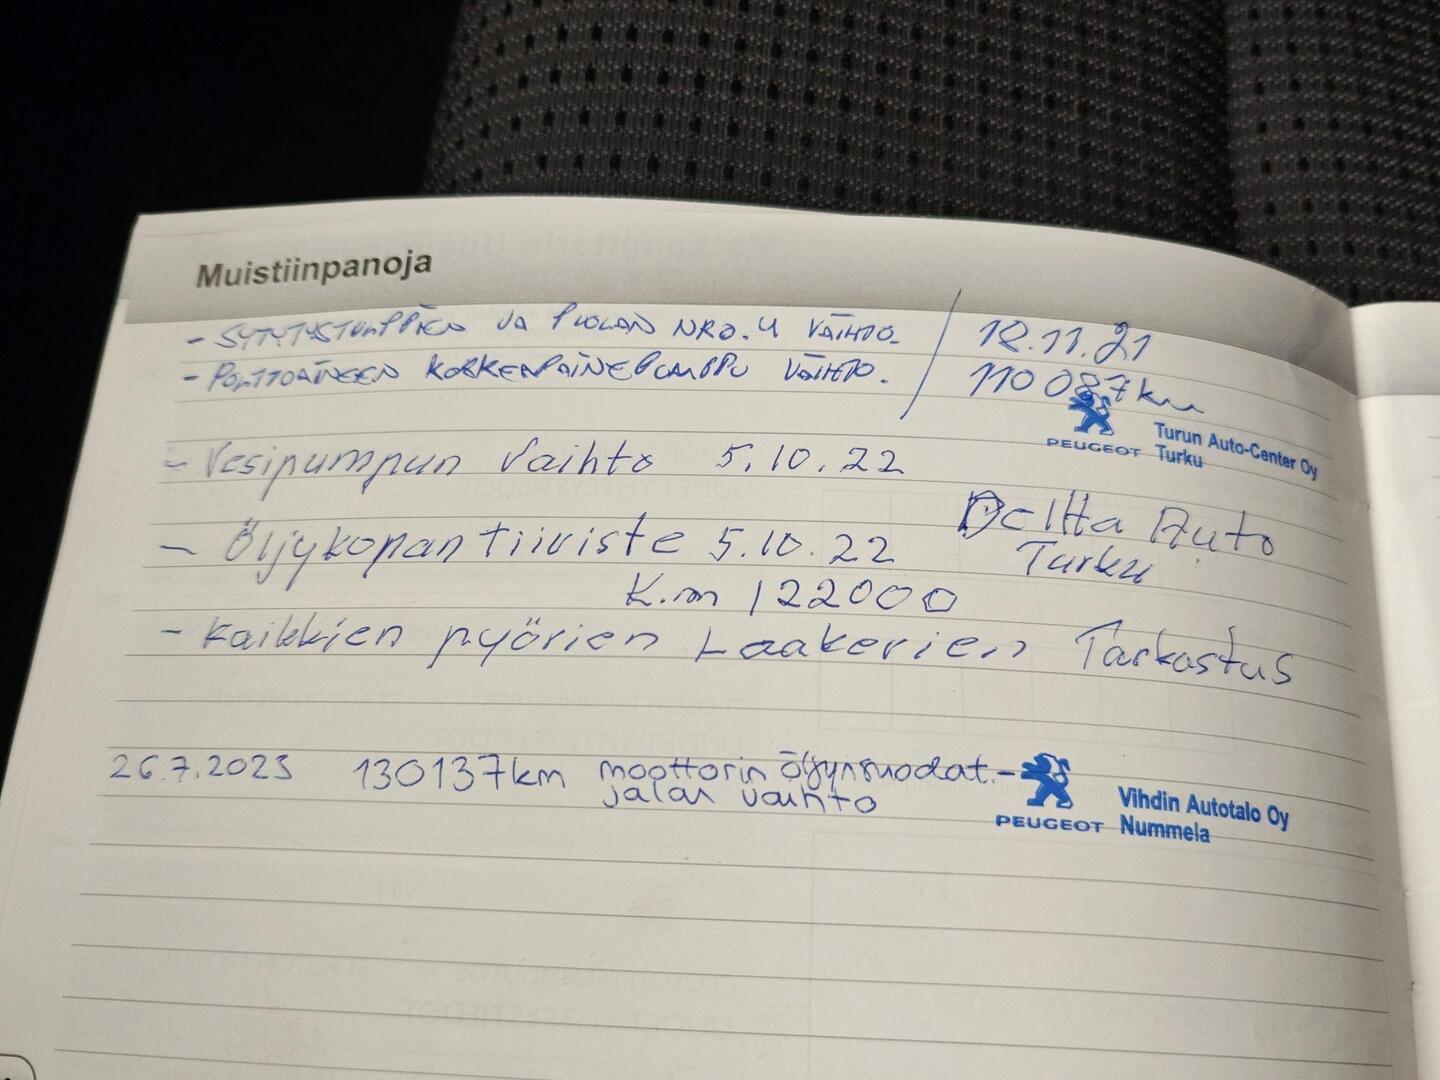 Muistiinpanoja
- SYTYTYSTULPPIEN JA PUOLAN NRO.4 VAIHTO. / 18.11.21
- POLTTOAINEEN KORKEAPAINEPUMPPU VAIHTO. 110 087km
PEUGEOT Turun Auto-Center Oy
Turku
- Vesipumpun Vaihto 5.10.22
Deltta Auto
- Öljykopan tiiviste 5.10.22 Turku
K.m 122000
- Kaikkien pyörien Laakerien Tarkastus
26.7.2023 130137km moottorin öljynsuodat.-
jalan vaihto
PEUGEOT Vihdin Autotalo Oy
Nummela